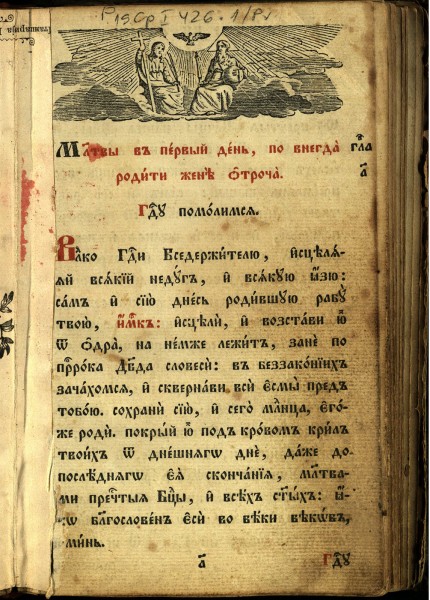 Р 19Ср I 426.1/Рs
Мл҃твы въ пе́рвый де́нь, по внегда̀ гл҃а
роди́ти женѣ̀ ѻ҆троча̀. а҃
Гдⷭ҇ꙋ помо́лимсѧ.
Влⷣко Гдⷭ҇и Вседержи́телю, и҆сцѣлѧ́-
ѧй всѧ́кїй недꙋ́гъ, и҆ всѧ́кꙋю ꙗ҆́зю:
са́мъ и҆ сїю̀ дне́сь роди́вшꙋю рабꙋ̀
твою̀, и҆́мⷬ҇къ: и҆сцѣлѝ, и҆ возста́ви ю҆̀
ѿ ѻ҆дра̀, на не́мже лежи́тъ, занѐ по
прⷪ҇ро́ка Дв҃да словесѝ: въ беззако́нїихъ
зача́хомсѧ, и҆ скверна́ви всѝ є҆смы̀ предъ
тобо́ю. сохранѝ сїю̀, и҆ сего̀ млⷣнца, є҆го́-
же родѝ. покры́й ю҆̀ под̾ кро́вомъ кри́лъ
твои́хъ ѿ дне́шнѧгѡ днѐ, да́же до
послѣ́днѧгѡ є҆ѧ̀ сконча́нїѧ, мл҃тва-
ми пречⷭ҇тыѧ Бцⷣы, и҆ всѣ́хъ ст҃ы́хъ: ꙗ҆́-
кѡ бл҃гослове́нъ є҆сѝ во вѣ́ки вѣкѡ́въ,
а҆ми́нь.
а҃ Гдⷭ҇ꙋ